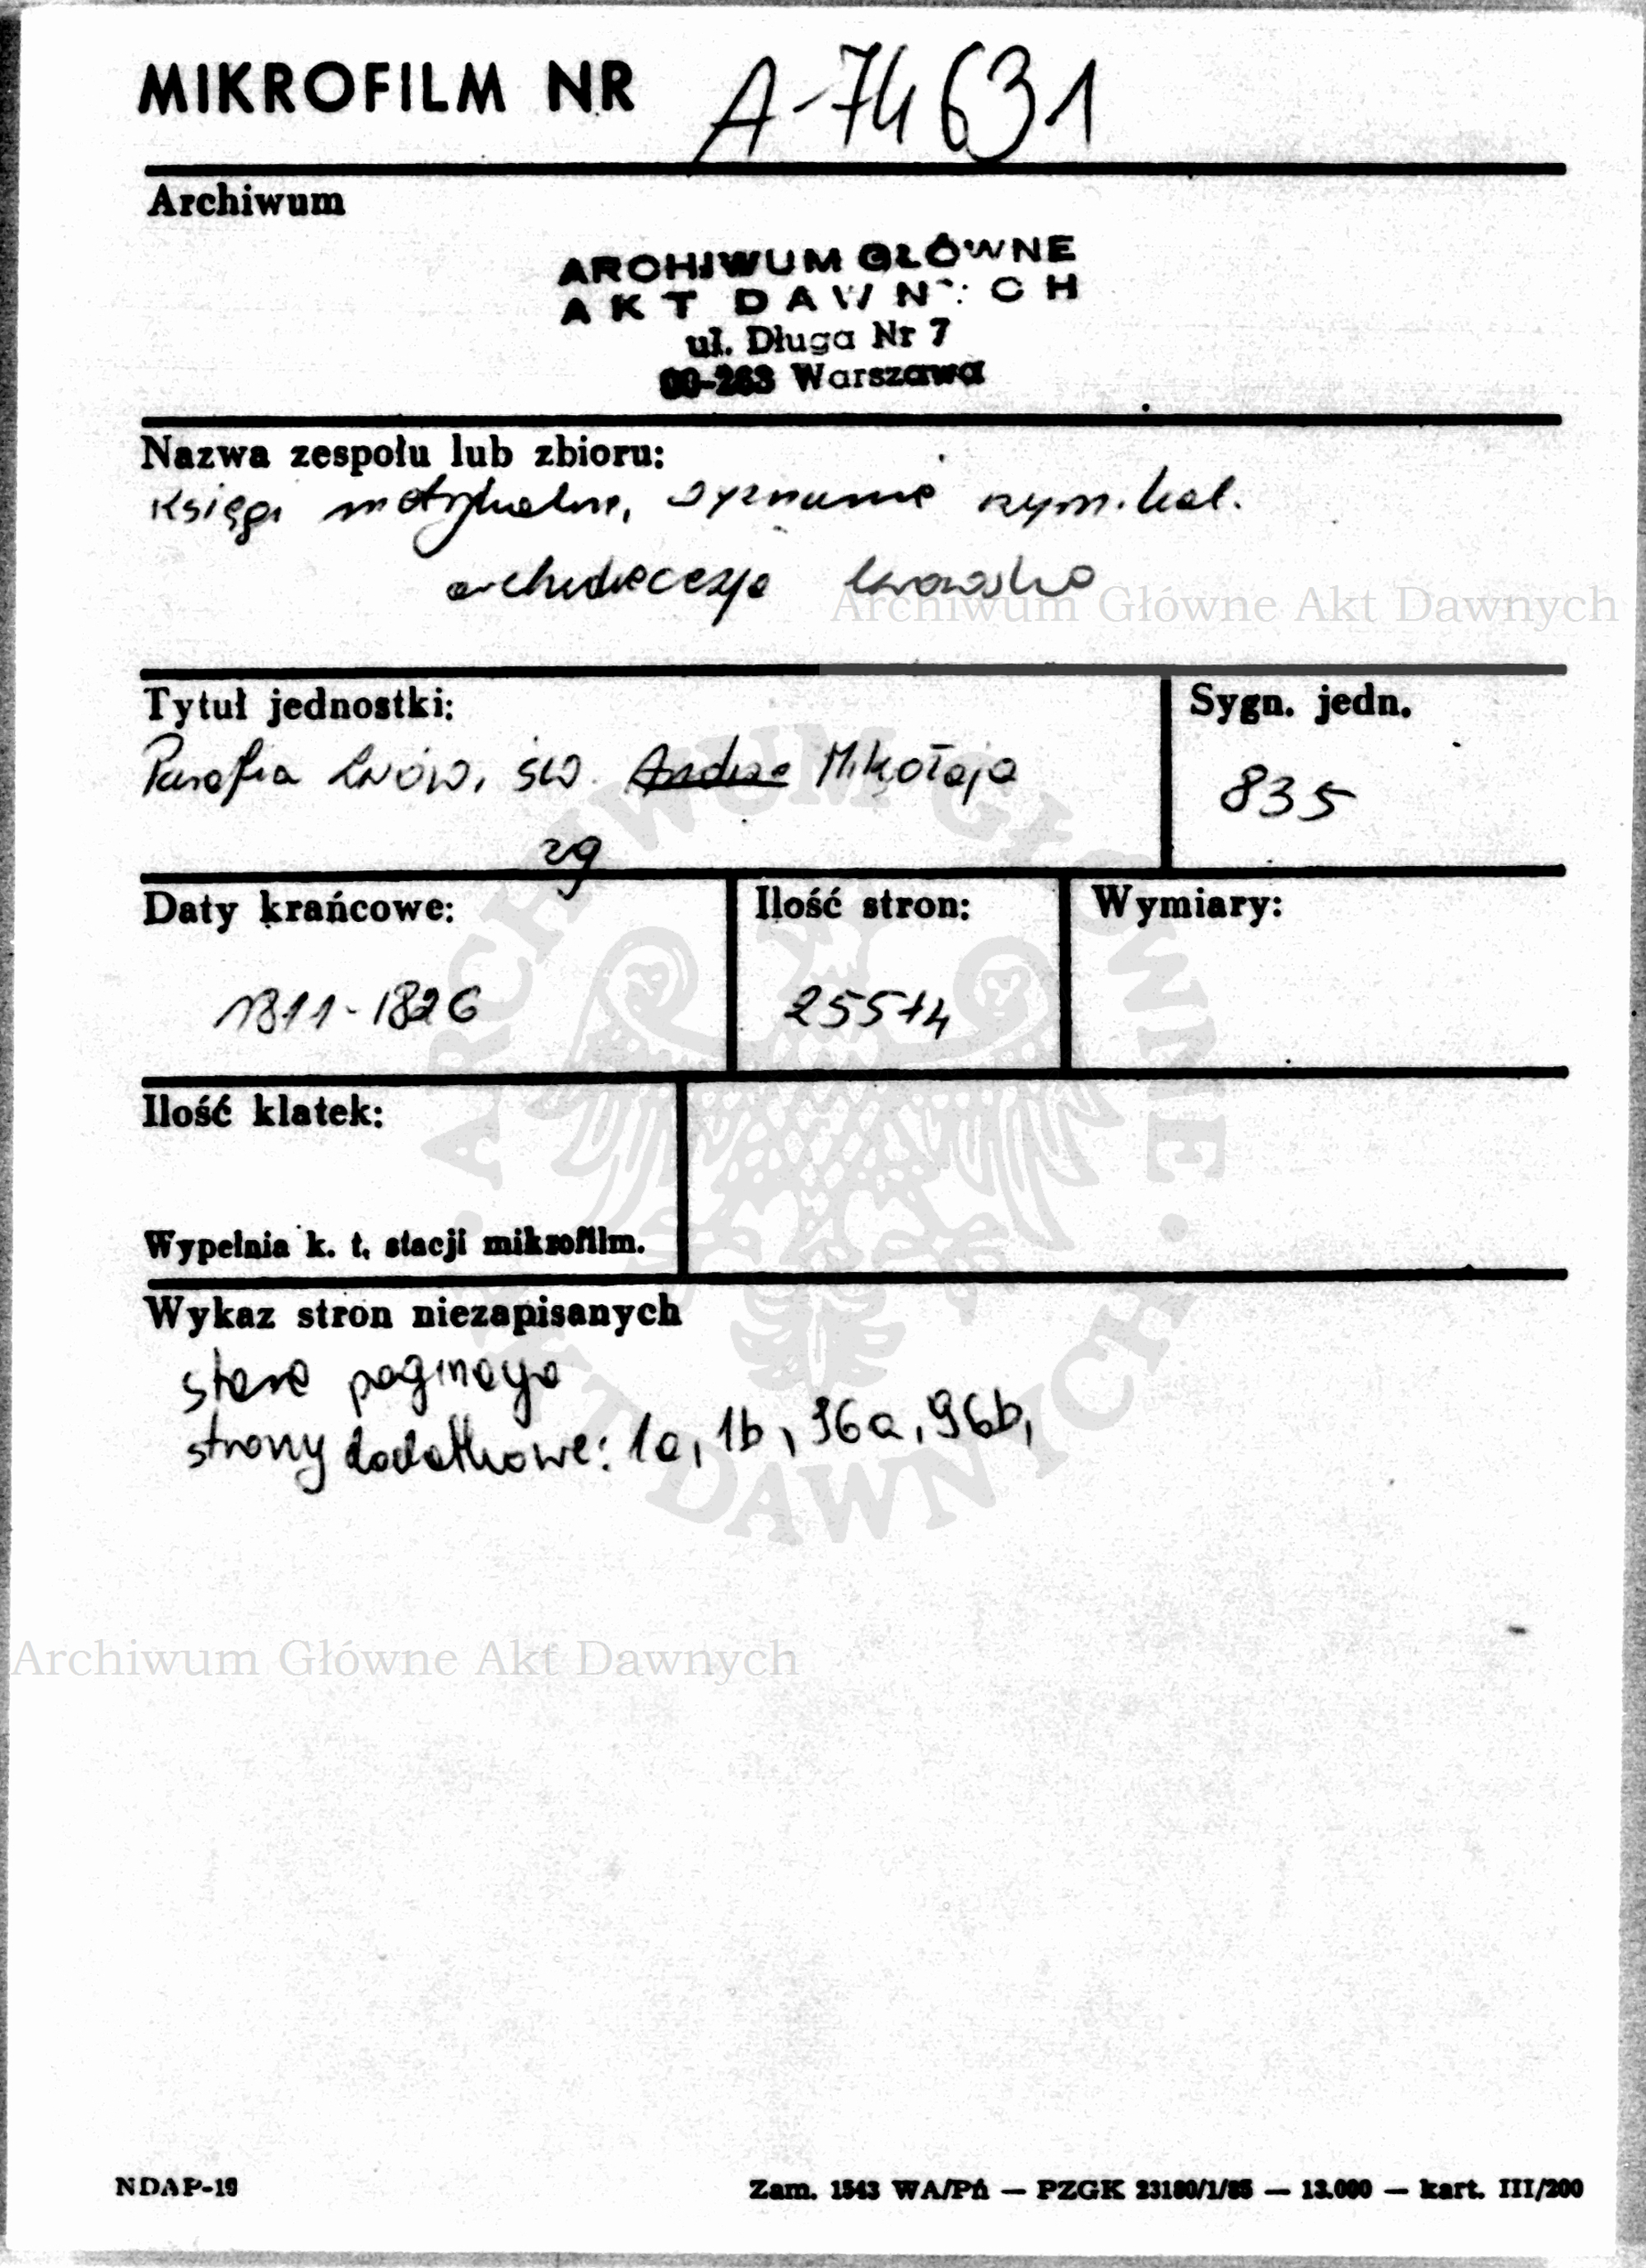 MIKROFILM NR A-74631
Archiwum
ARCHIWUM GŁÓWNE
AKT DAWNYCH
ul. Długa Nr 7
00-263 Warszawa
Nazwa zespołu lub zbioru:
Księgi metrykalne, wyznanie rzym. kat.
archidiecezja lwowska
Archiwum Główne Akt Dawnych
Tytuł jednostki:
Parafia Lwów, św. Mikołaja
zg
Sygn. jedn.
835
Daty krańcowe:
1811-1826
Ilość stron:
255+4
Wymiary:
Ilość klatek:
Wypełnia k. t. stacji mikrofilm.
Wykaz stron niezapisanych
stara paginacja
strony dodatkowe: 1a, 1b, 96a, 96b,
ARCHIWUM GŁÓWNE AKT DAWNYCH
Archiwum Główne Akt Dawnych
NDAP-19
Zam. 1543 WA/Pń — PZGK 23180/1/85 — 13.000 — kart. III/200